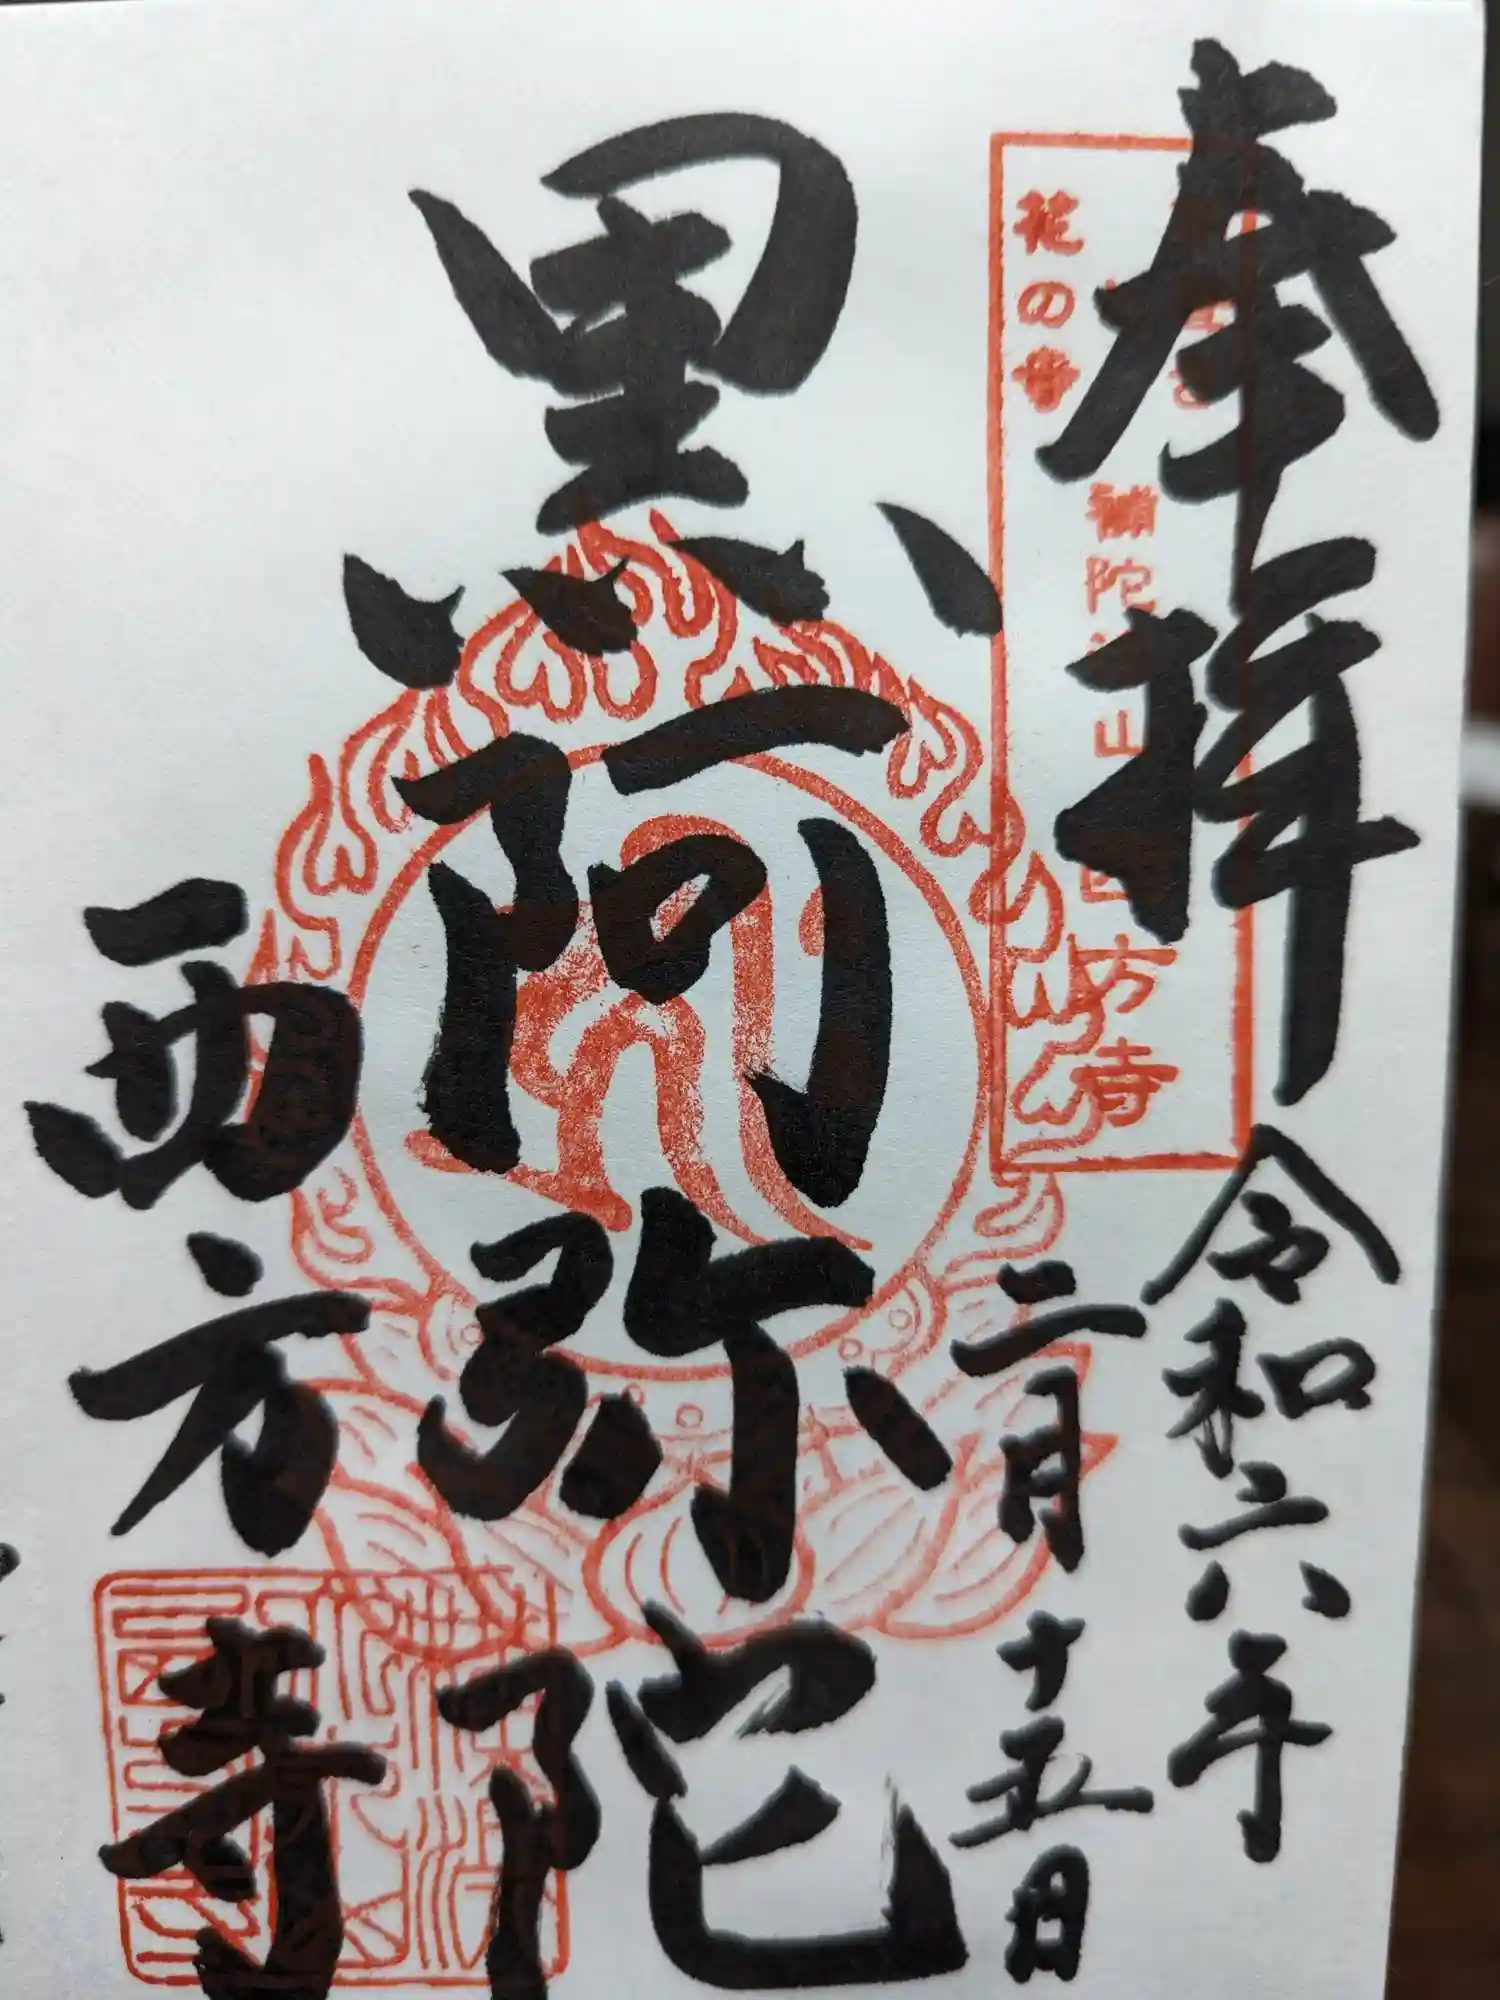 奉拝
令和六年
二月十五日
花の寺
補陀洛山西方寺
黒阿弥陀
西方寺